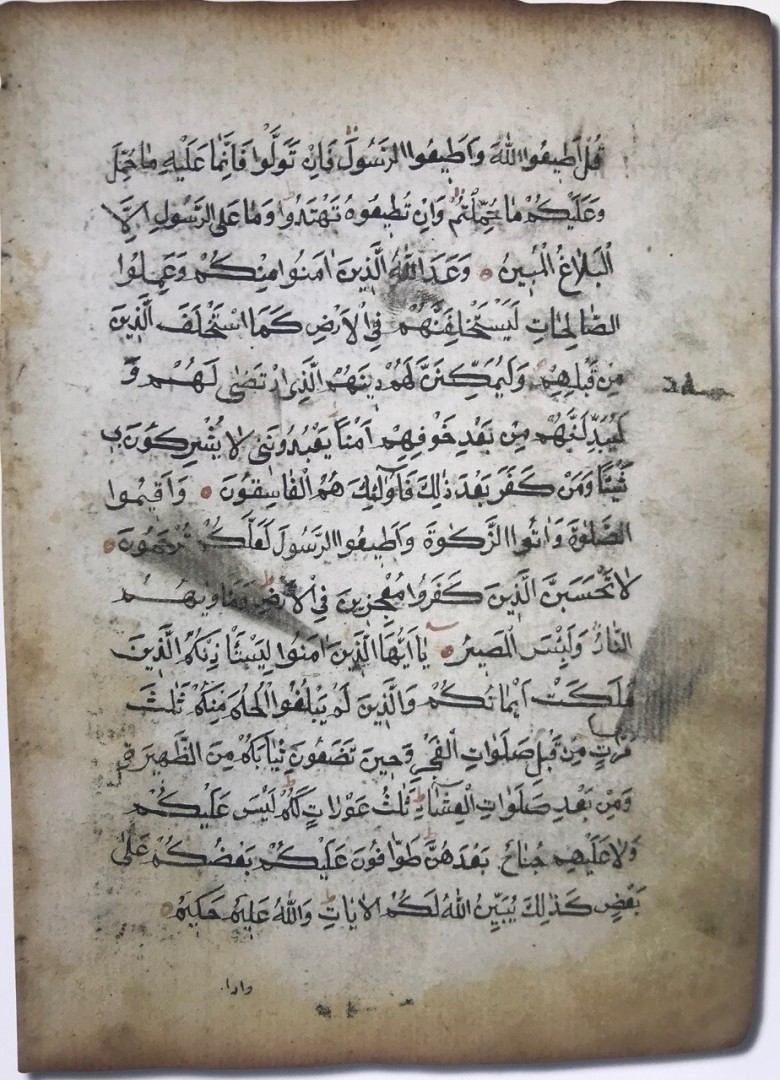 قُلْ اَطِيعُوا اللّٰهَ وَاَطِيعُوا الرَّسُولَ فَاِنْ تَوَلَّوْا فَاِنَّمَا عَلَيْهِ مَا حُمِّلَ
وَعَلَيْكُمْ مَا حُمِّلْتُمْ وَاِنْ تُطِيعُوهُ تَهْتَدُوا وَمَا عَلَى الرَّسُولِ اِلَّا
الْبَلَاغُ الْمُبِينُ وَعَدَ اللّٰهُ الَّذِينَ اٰمَنُوا مِنْكُمْ وَعَمِلُوا
الصَّالِحَاتِ لَيَسْتَخْلِفَنَّهُمْ فِي الْاَرْضِ كَمَا اسْتَخْلَفَ الَّذِينَ
مِنْ قَبْلِهِمْ وَلَيُمَكِّنَنَّ لَهُمْ دِينَهُمُ الَّذِي ارْتَضٰى لَهُمْ وَ
لَيُبَدِّلَنَّهُمْ مِنْ بَعْدِ خَوْفِهِمْ اَمْنًا يَعْبُدُونَنِي لَا يُشْرِكُونَ بِي
شَيْئًا وَمَنْ كَفَرَ بَعْدَ ذٰلِكَ فَاُولٰٓئِكَ هُمُ الْفَاسِقُونَ وَاَقِيمُوا
الصَّلٰوةَ وَاٰتُوا الزَّكٰوةَ وَاَطِيعُوا الرَّسُولَ لَعَلَّكُمْ تُرْحَمُونَ
لَا تَحْسَبَنَّ الَّذِينَ كَفَرُوا مُعْجِزِينَ فِي الْاَرْضِ وَمَاْوٰيهُمُ
النَّارُ وَلَبِئْسَ الْمَصِيرُ يَا اَيُّهَا الَّذِينَ اٰمَنُوا لِيَسْتَاْذِنْكُمُ الَّذِينَ
مَلَكَتْ اَيْمَانُكُمْ وَالَّذِينَ لَمْ يَبْلُغُوا الْحُلُمَ مِنْكُمْ ثَلٰثَ
مَرَّاتٍ مِنْ قَبْلِ صَلَوٰاتِ الْفَجْرِ وَحِينَ تَضَعُونَ ثِيَابَكُمْ مِنَ الظَّهِيرَةِ
وَمِنْ بَعْدِ صَلَوٰاتِ الْعِشَاءِ ثَلٰثُ عَوْرَاتٍ لَكُمْ لَيْسَ عَلَيْكُمْ
وَلَا عَلَيْهِمْ جُنَاحٌ بَعْدَهُنَّ طَوَّافُونَ عَلَيْكُمْ بَعْضُكُمْ عَلٰى
بَعْضٍ كَذٰلِكَ يُبَيِّنُ اللّٰهُ لَكُمُ الْاٰيَاتِ وَاللّٰهُ عَلِيمٌ حَكِيمٌ
واذا